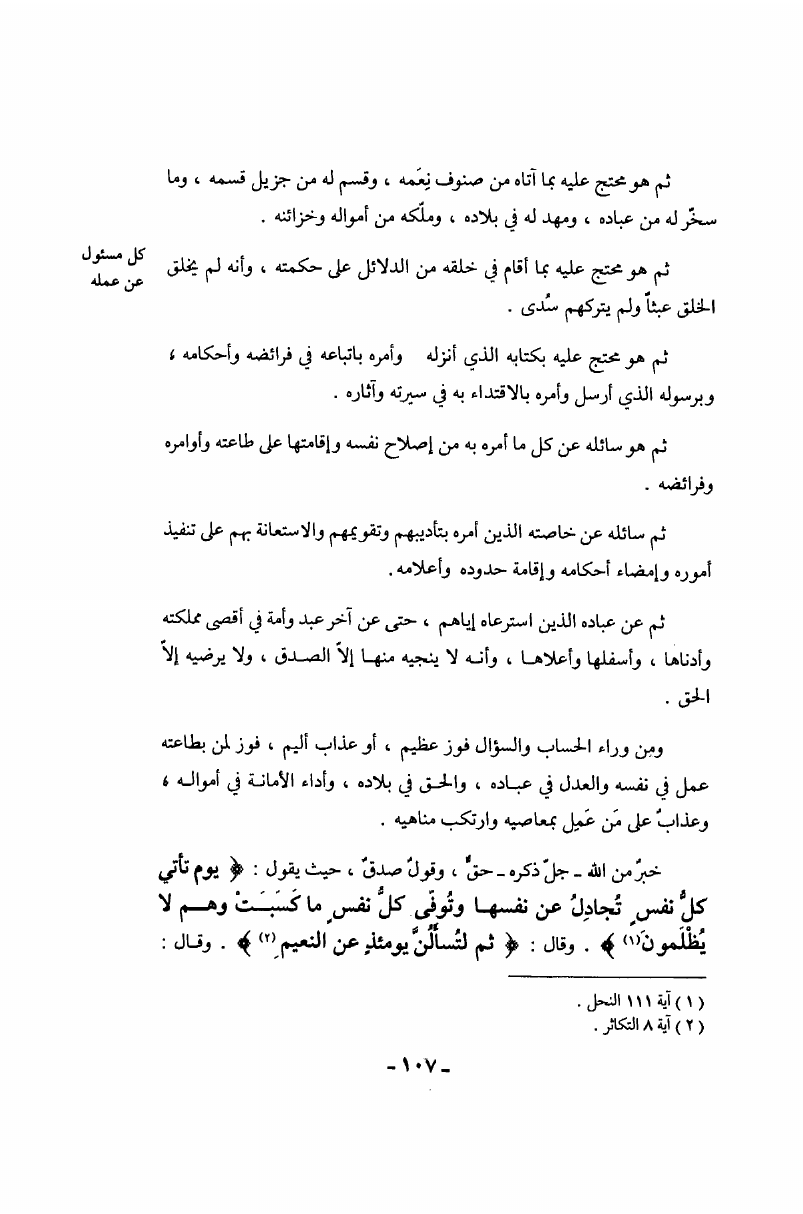 ثم هو محتج عليه بما آتاه من صنوف نِعَمه ، وقسم له من جزيل قسمه ، وما
سخّر له من عباده ، ومهد له في بلاده ، وملّكه من أمواله وخزائنه .
كل مسئول
عن عمله
ثم هو محتج عليه بما أقام في خلقه من الدلائل على حكمته ، وأنه لم يخلق
الخلق عبثاً ولم يتركهم سُدى .
ثم هو محتج عليه بكتابه الذي أنزله وأمره باتباعه في فرائضه وأحكامه ،
وبرسوله الذي أرسل وأمره بالاقتداء به في سيرته وآثاره .
ثم هو سائله عن كل ما أمره به من إصلاح نفسه وإقامتها على طاعته وأوامره
وفرائضه .
ثم سائله عن خاصته الذين أمره بتأديبهم وتقويمهم والاستعانة بهم على تنفيذ
أموره وإمضاء أحكامه وإقامة حدوده وأعلامه .
ثم عن عباده الذين استرعاه إياهم ، حتى عن آخر عبد وأمة في أقصى مملكته
وأدناها ، وأسفلها وأعلاها ، وأنه لا ينجيه منها إلاّ الصدق ، ولا يرضيه إلاّ
الحق .
ومِن وراء الحساب والسؤال فوز عظيم ، أو عذاب أليم ، فوز لمن بطاعته
عمل في نفسه والعدل في عباده ، والحق في بلاده ، وأداء الأمانة في أمواله ،
وعذابٌ على مَن عَمِل بمعاصيه وارتكب مناهيه .
خبرٌ من الله ـ جلّ ذكره ـ حقٌّ ، وقولٌ صدقٌ ، حيث يقول : ﴿ يوم تأتي
كلُّ نفسٍ تُجادِلُ عن نفسها وتُوفّى كلُّ نفسٍ ما كَسَبَتْ وهم لا
يُظْلَمونَ(١) ﴾ . وقال : ﴿ ثم لتُسأَلُنَّ يومئذٍ عن النعيمِ(٢) ﴾ . وقال :
(١) آية ١١١ النحل .
(٢) آية ٨ التكاثر .
- ١٠٧ -